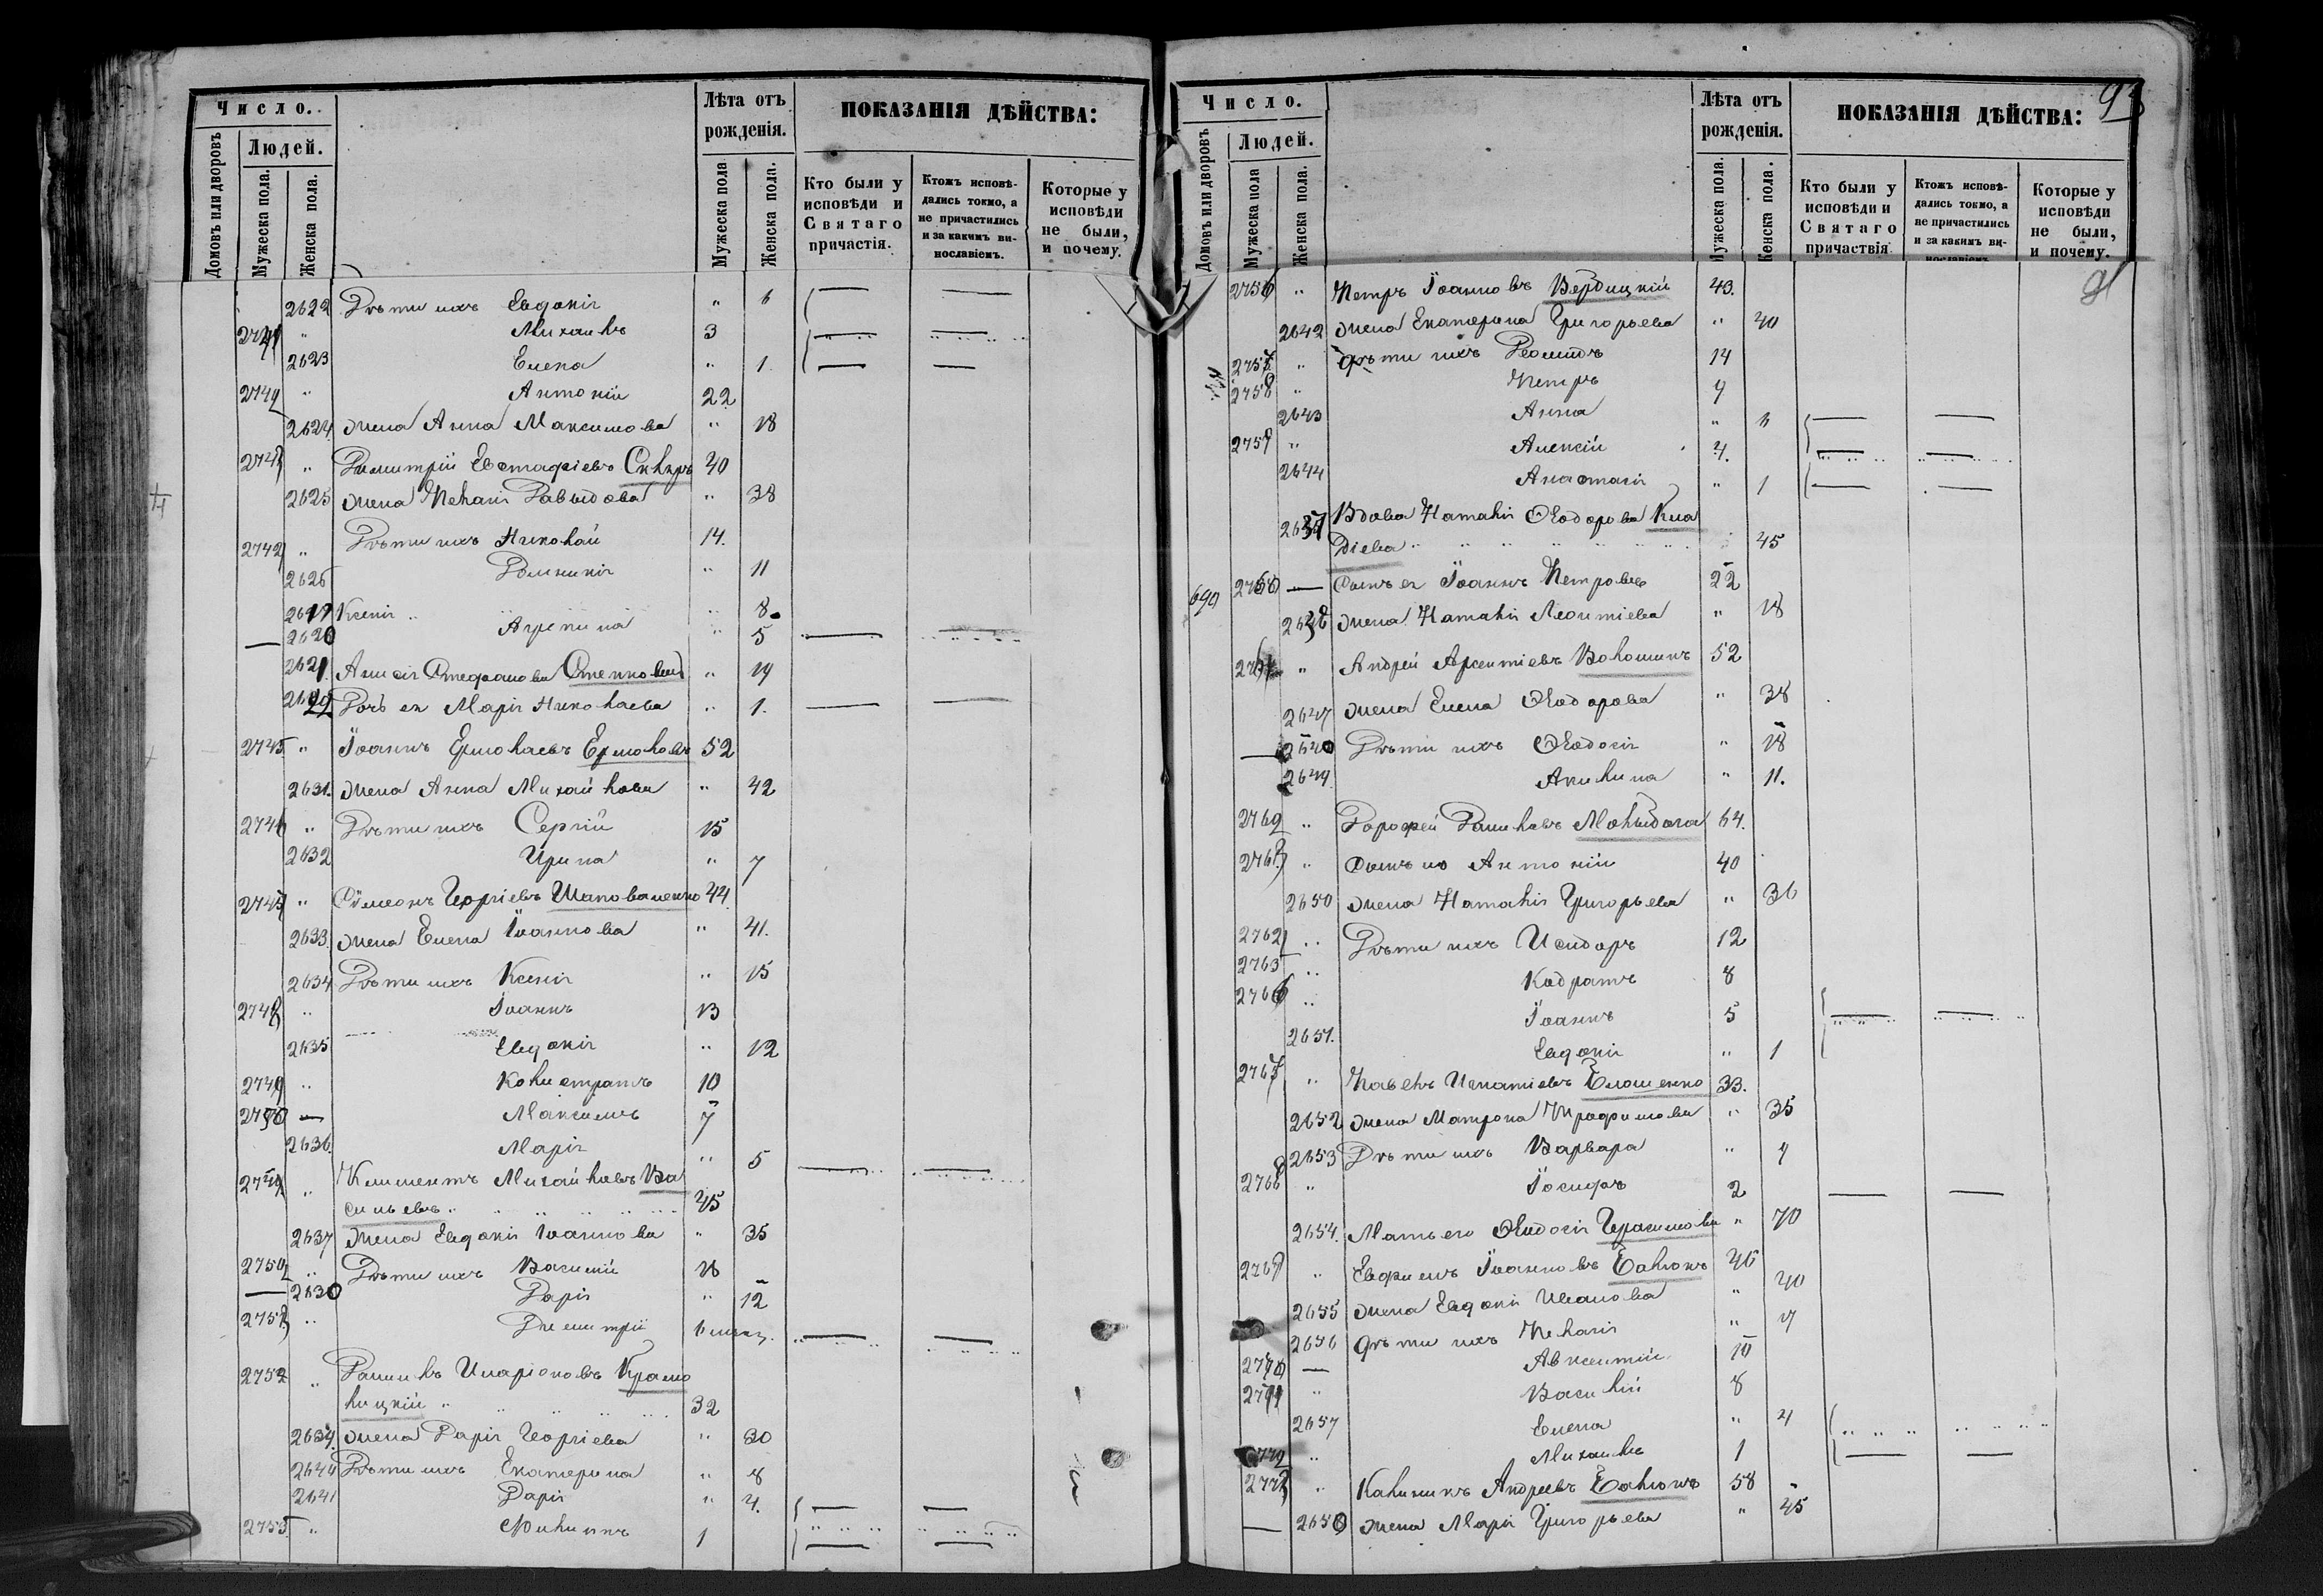 Число.
Людей.
Домовъ или дворовъ
Мужеска пола.
Женска пола.
Лѣта отъ
рожденія.
Мужеска пола
Женска пола.
ПОКАЗАНІЯ ДѢЙСТВА:
Кто были у
исповѣди и
Святаго
причастія.
Ктожъ исповѣ-
дались токмо, а
не причастились
и за какимъ ви-
нословіемъ.
Которые у
исповѣди
не были,
и почему.
2622 Дѣти ихъ Евдокія " 6
" Михаилъ 3
2623 Елена " 1.
" Антоній 22
2624 жена Анна Максимова " 18
" Димитрій Евстафіевъ 40
2625 жена Пелагія Давидова " 38
2742 " Дѣти ихъ Николай 14.
2626 Домникія " 11
Ксенія " 8
Агрипина " 5
Анисія Стефанова " 19
Дочь ея Марія Николаева " 1.
2745 " Іоаннъ Ермолаевъ Ермоловъ 52
2631. жена Анна Михайлова " 42
2746 " Дѣти ихъ Сергій 15
2632 Ирина " 7
" Сѵмеонъ Георгіевъ Шаповаленко 44
2633. жена Елена Іоаннова " 41.
2634 Дѣти ихъ Ксенія " 15
2748 " Іоаннъ 13
2635 Евдокія " 12
2749 " Калистратъ 10
— Максимъ 7
2636. Марія " 5
" Климентъ Михайловъ Ва
сильевъ " 45
2637 жена Евдокія Іоаннова " 35
" Дѣти ихъ Василій 16
— 2638 Дарія " 12
" Димитрій 6 мѣсяц.
2752 " Даніилъ Иларіоновъ Крамо
лицкій " 32
жена Дарія Георгіева " 30
Дѣти ихъ Екатерина " 8
2641 Дарія " 4.
2753 " Филипъ 1
Число.
Людей.
Домовъ или дворовъ
Мужеска пола
Женска пола.
Лѣта отъ
рожденія.
Мужеска пола.
Женска пола.
ПОКАЗАНІЯ ДѢЙСТВА:
Кто были у
исповѣди и
Святаго
причаствія
Ктожъ исповѣ-
дались токмо, а
не причастились
и за какимъ ви-
нословіемъ
Которые у
исповѣди
не были,
и почему.
93
91
2756 " Петръ Іоанновъ Вербицкій 43.
2642 жена Екатерина Григорьева " 40
2757 " Дѣти ихъ Леонидъ 14
2758 " Петръ 9
2643 Анна " 6
2759 " Алексій 4.
2644 Анастасія " 1
Вдова Наталія Ѳеодорова Кла
діева " 45
690 2760 — Сынъ ея Іоаннъ Петровъ 22
жена Наталія Леонтіева " 18
" Андрей Арсентіевъ Волошинъ 52
2647 жена Елена Ѳеодорова " 38
— Дѣти ихъ Ѳеодосія " 18
2649 Акилина " 11.
2762 " Дорофей Даниловъ 64.
2763 " Сынъ его Антоній 40
2650 жена Наталія Григорьева " 36
" Дѣти ихъ Исидоръ 12
2765 " Кодратъ 8
2766 " Іоаннъ 5
2651. Евдокія " 1
2767 " Павелъ Игнатіевъ 33.
2652 жена Матрона Трофимова " 35
2653 Дѣти ихъ Варвара " 9
2768 " Іосифъ 2
2654. Мать его Ѳеодосія Герасимова " 70
2769 " Евфимъ Іоанновъ 46
2655 жена Евдокія Иванова " 40
2656 Дѣти ихъ Пелагія " 9
2770 — Авксентій 10
2771 " Василій 8
2657 Елена " 4
2772 " Михаилъ 1
2773 " Калиникъ Андреевъ 58
— 2658 жена Марія Григорьева " 45